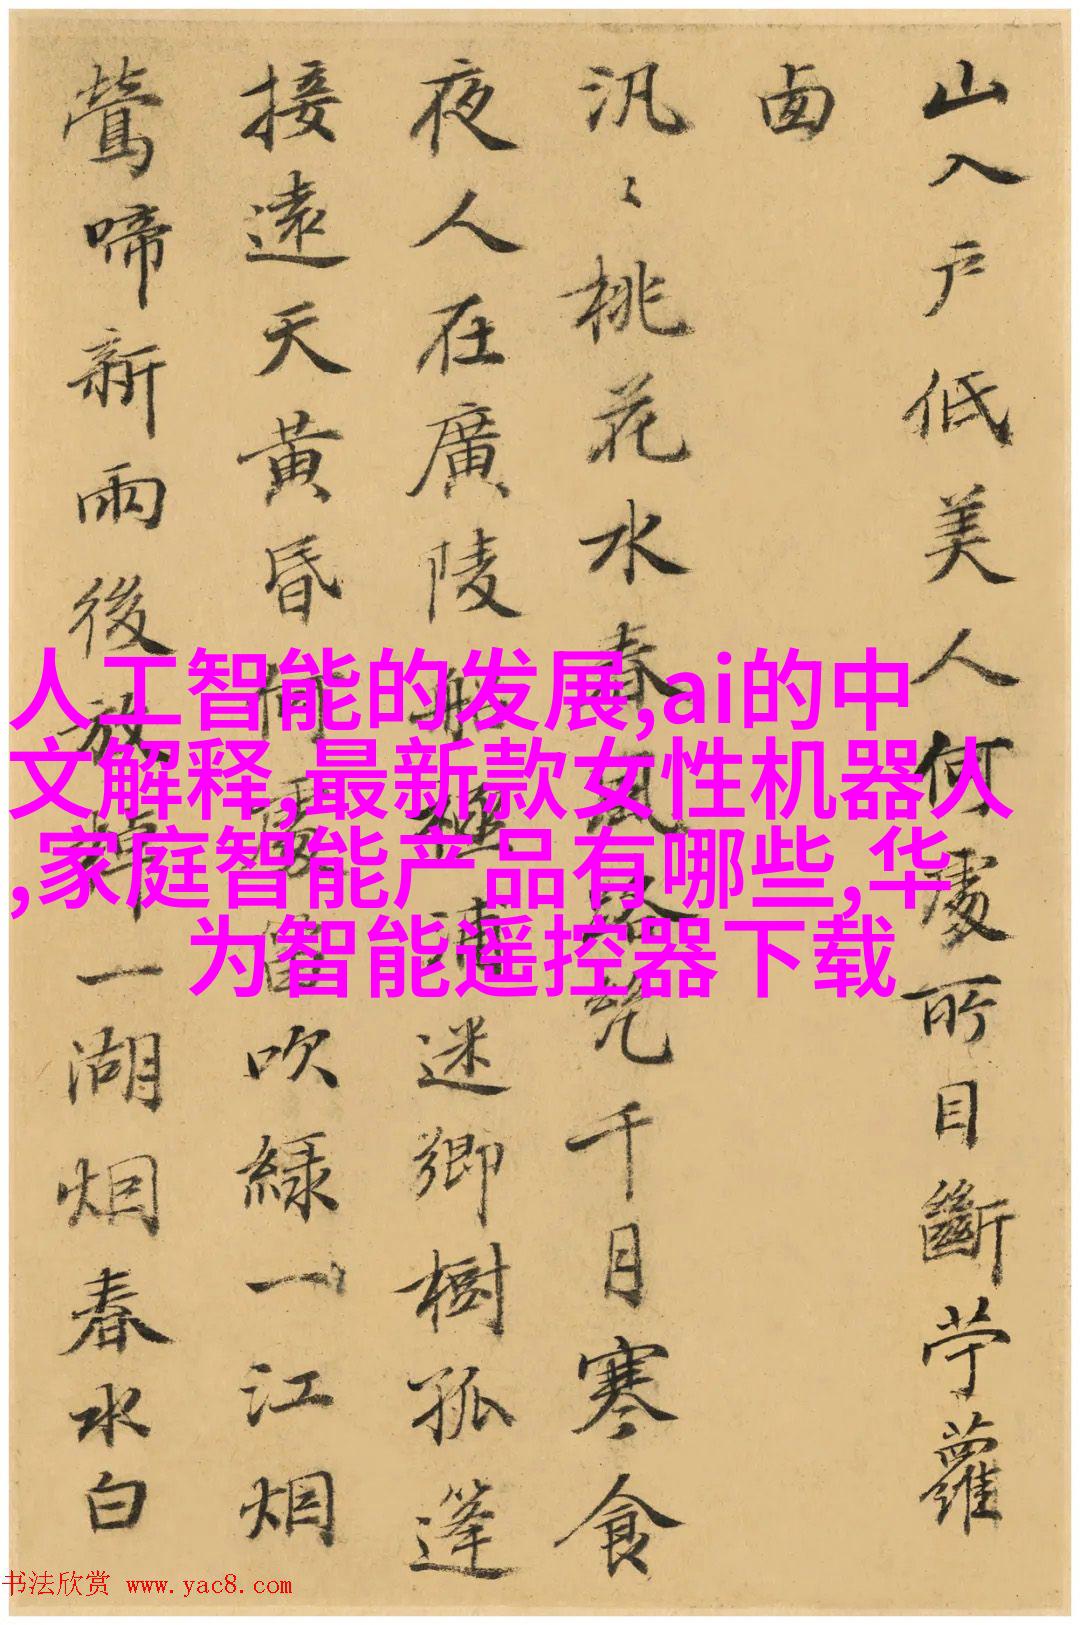 山入户低美人何處所目斷苧蘿
卥
汎〻桃花水春風路绝千月寒食
夜人在廣陵極浦迷鄉樹孤篷
接遠天黃昏何處笛吹綠一江烟
鶯啼新雨後放棹一湖烟春水白
人工智能的发展,ai的中
文解释,最新款女性机器人
,家庭智能产品有哪些,华
为智能遥控器下载
书法欣赏 www.yac8.com